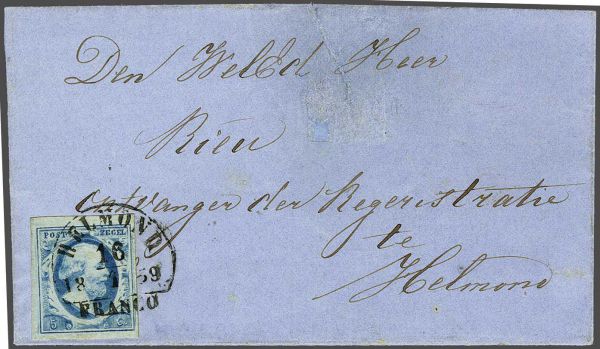 Den WelEd Heer
Rieu
Ontvanger der Regeristratie
te
Helmond
POST ZEGEL
HELMOND
16
18 59
FRANCO
5 C.